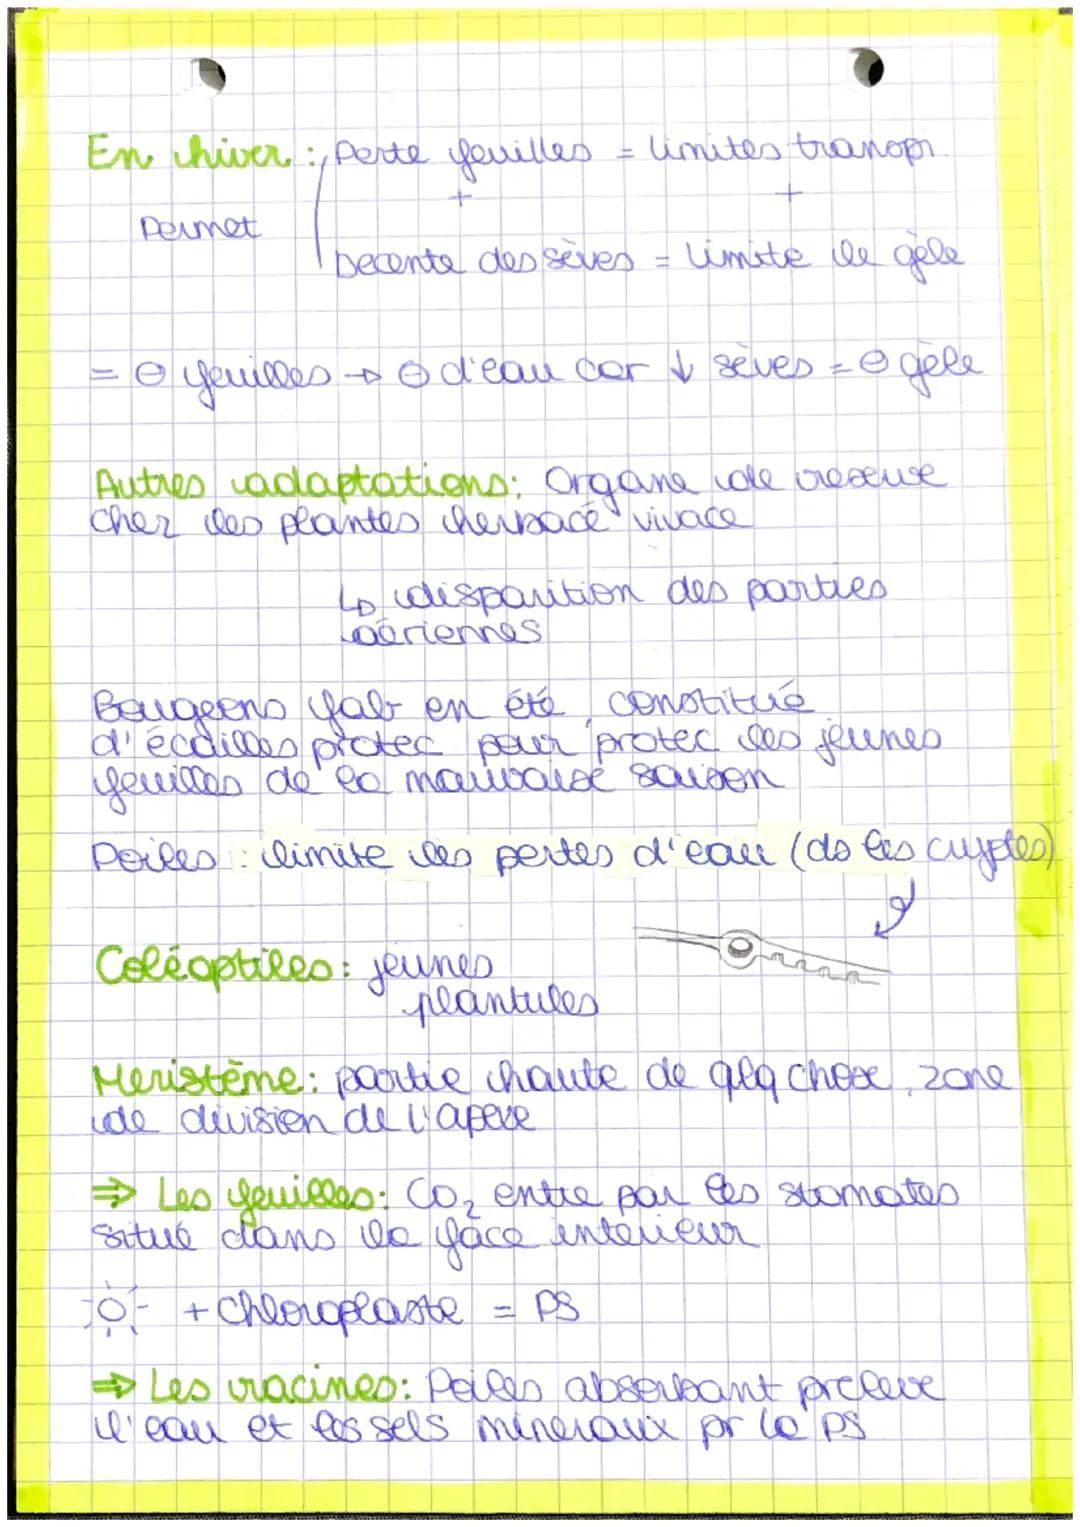 En hiver : Perte feuilles = limites transpi.
+ +
Permet
Decente des sèves = limite le gèle
= ⊖ feuilles → ⊖ d'eau car ↓ sèves = ⊖ gèle
Autres adaptations : Organe de reserve
chez les plantes herbacé vivace
↳ disparition des parties
aériennes
Bougeons fab en été, constitué
d'écailles protec pour protec les jeunes
feuilles de la mauvaise saison
Poiles : limite les pertes d'eau (ds les cryptes)
Coléoptiles : jeunes
plantules
Meristème : partie haute de qlq chose, zone
de division de l'apexe
⇒ Les feuilles : CO₂ entre par les stomates
situé dans la face interieur
+ Chloroplaste = PS
⇒ Les racines : Poiles absorbant preleve
l'eau et les sels mineraux pr la PS